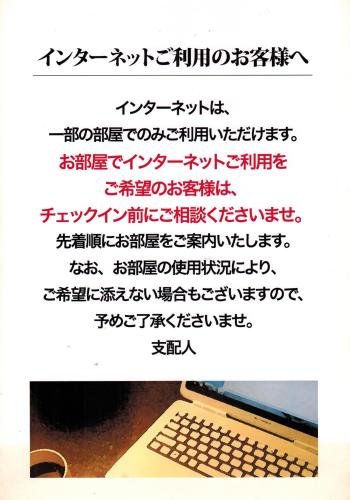 インターネットご利用のお客様へ
インターネットは、
一部の部屋でのみご利用いただけます。
お部屋でインターネットご利用を
ご希望のお客様は、
チェックイン前にご相談くださいませ。
先着順にお部屋をご案内いたします。
なお、お部屋の使用状況により、
ご希望に添えない場合もございますので、
予めご了承くださいませ。
支配人